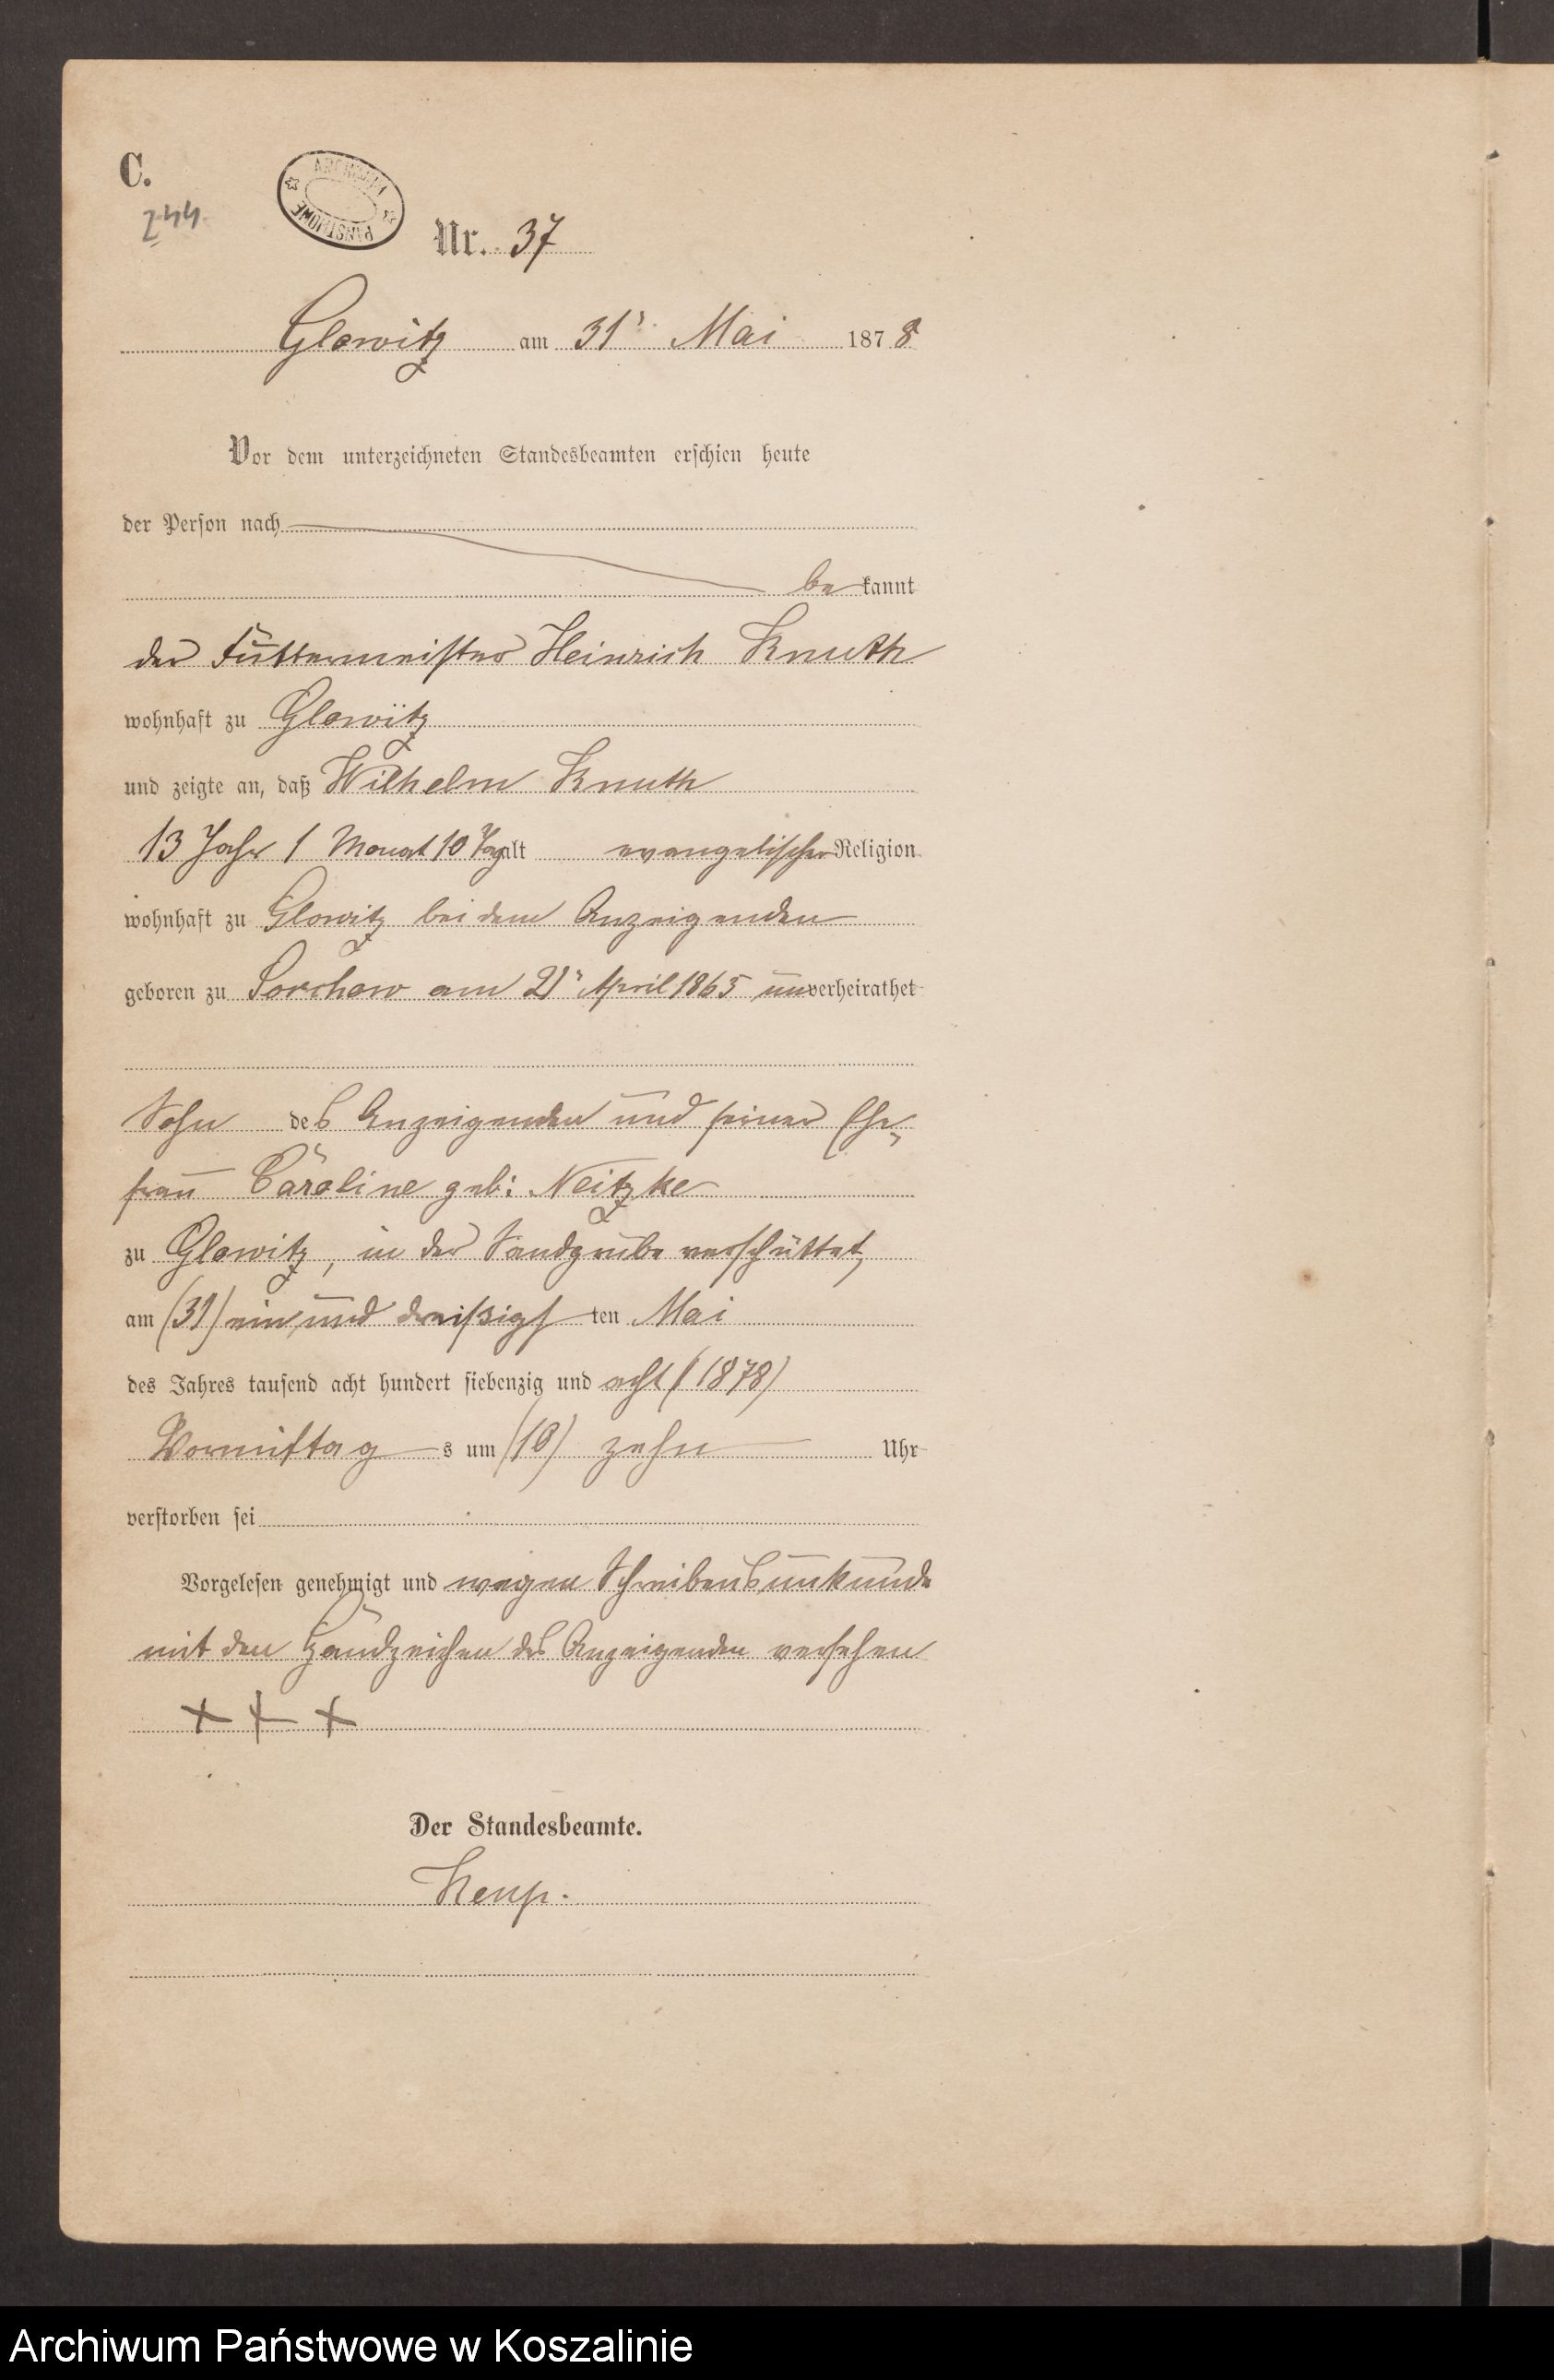 C.
244
ARCHIWUM PAŃSTWOWE
Nr. 37
Glowitz am 31' Mai 1878
Vor dem unterzeichneten Standesbeamten erschien heute
der Person nach
bekannt
der Füttermeister Heinrich Knuth
wohnhaft zu Glowitz
und zeigte an, daß Wilhelm Knuth
13 Jahr 1 Monat 10 Tag alt evangelischer Religion
wohnhaft zu Glowitz bei dem Anzeigenden
geboren zu Sorchow am 21' April 1865 unverheirathet
Sohn des Anzeigenden und seiner Ehe,
frau Caroline geb: Neitzke
zu Glowitz, in der Sandgrube verschüttet,
am (31) ein und dreißigsten Mai
des Jahres tausend acht hundert siebenzig und acht (1878)
Vormittags um (10) zehn Uhr
verstorben sei
Vorgelesen genehmigt und wegen Schreibensunkunde
mit den Handzeichen des Anzeigenden versehen
+ + +
Der Standesbeamte.
Archiwum Państwowe w Koszalinie